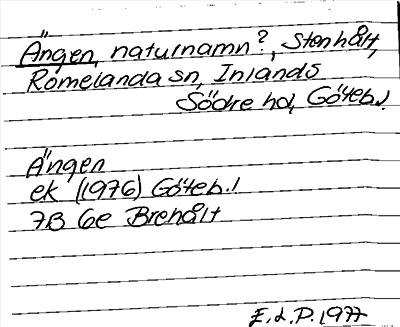 Ängen, naturnamn?, Stenhålt,
Romelanda sn, Inlands
Södre hd, Göteb.l.
Ängen
ek (1976) Göteb.l
7B 6e Brehålt
E.d.P. 1977